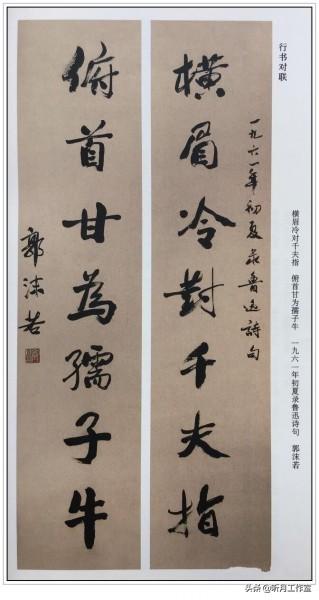 行书对联
横眉冷对千夫指 俯首甘为孺子牛 一九六一年初夏录鲁迅诗句 郭沫若
一九六一年初夏录鲁迅詩句
横眉冷對千夫指
俯首甘為孺子牛
郭沫若
头条@昕月工作室